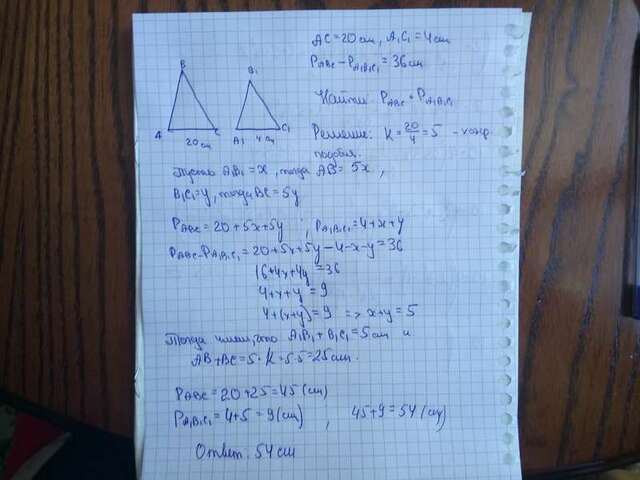 AC = 20 см, A₁C₁ = 4 см
P_ABC - P_A₁B₁C₁ = 36 см
Найти: P_ABC + P_A₁B₁C₁
B
B₁
A
C
20 см
A₁
4 см
C₁
Решение: K = 20/4 = 5 - коэф.
подобия.
Пусть A₁B₁ = x, тогда AB = 5x,
B₁C₁ = y, тогда BC = 5y
P_ABC = 20 + 5x + 5y, P_A₁B₁C₁ = 4 + x + y
P_ABC - P_A₁B₁C₁ = 20 + 5x + 5y - 4 - x - y = 36
16 + 4x + 4y = 36
4 + x + y = 9
4 + (x + y) = 9 => x + y = 5
Тогда имеем, что A₁B₁ + B₁C₁ = 5 см и
AB + BC = 5 · K = 5 · 5 = 25 см.
P_ABC = 20 + 25 = 45 (см)
P_A₁B₁C₁ = 4 + 5 = 9 (см), 45 + 9 = 54 (см)
Ответ: 54 см